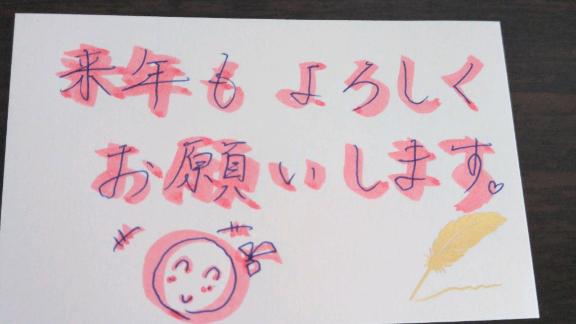 来年もよろしく
お願いします♡